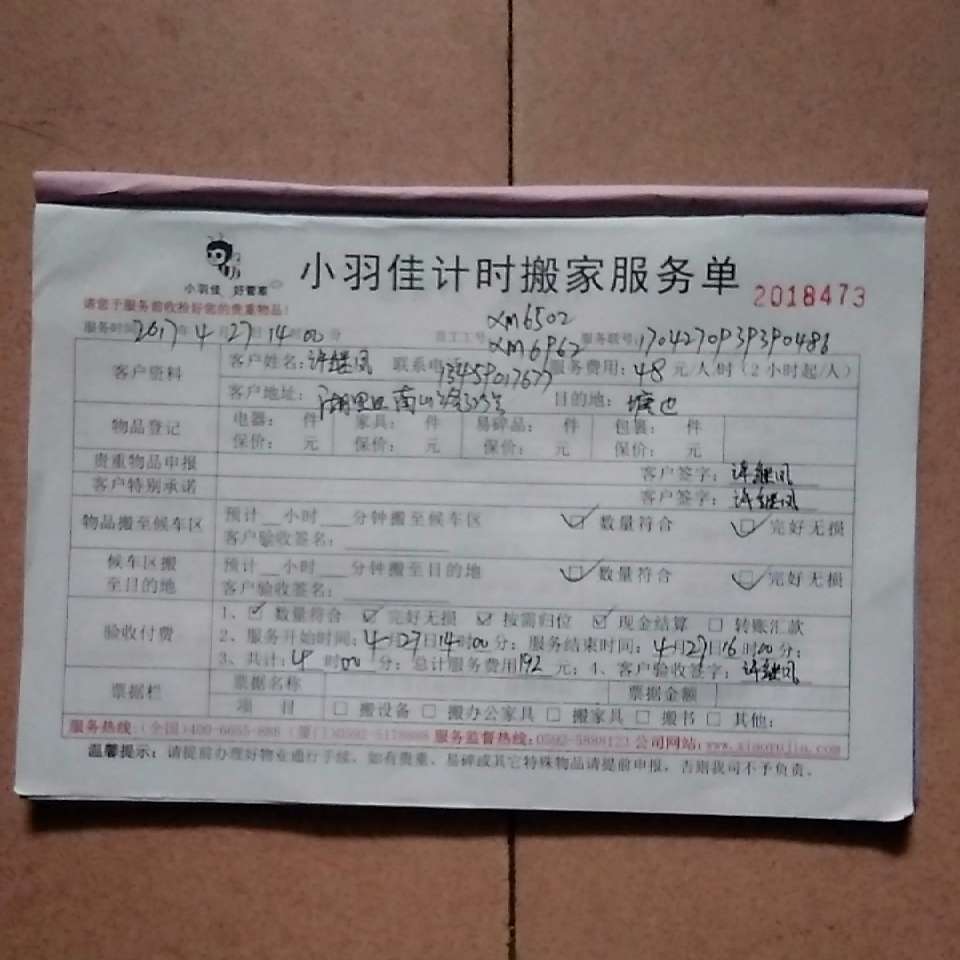 小羽佳 好管家
小羽佳计时搬家服务单
2018473
请您于服务前收捡好您的贵重物品!
服务时间 2017年4月27日14时00分 员工工号 XM6502 XM6962 服务联号:
客户资料
客户姓名:许继凤 联系电话 13459017677 服务费用:48元/人/时(2小时起/人)
客户地址:湖里区南山路 目的地:
物品登记
电器: 件 家具: 件 易碎品: 件 包裹: 件
保价: 元 保价: 元 保价: 元 保价: 元
贵重物品申报 客户签字:许继凤
客户特别承诺 客户签字:许继凤
物品搬至候车区
预计__小时___分钟搬至候车区 ☑数量符合 ☑完好无损
客户验收签名:
候车区搬至目的地
预计__小时___分钟搬至目的地 ☑数量符合 ☑完好无损
客户验收签名:
验收付费
1、☑数量符合 ☑完好无损 ☑按需归位 ☑现金结算 □转账汇款
2、服务开始时间:4月27日14时00分;服务结束时间:4月27日16时00分;
3、共计:4时00分;总计服务费用192元;4、客户验收签字:许继凤
票据栏
票据名称 票据金额
项目 □搬设备 □搬办公家具 □搬家具 □搬书 □其他:
服务热线:(全国)400-6655-886 (厦门)0592-5178888 服务监督热线:0592-5888123 公司网站:www.xiaoyujia.com
温馨提示:请提前办理好物业通行手续,如有贵重、易碎或其它特殊物品请提前申报,否则我司不予负责。